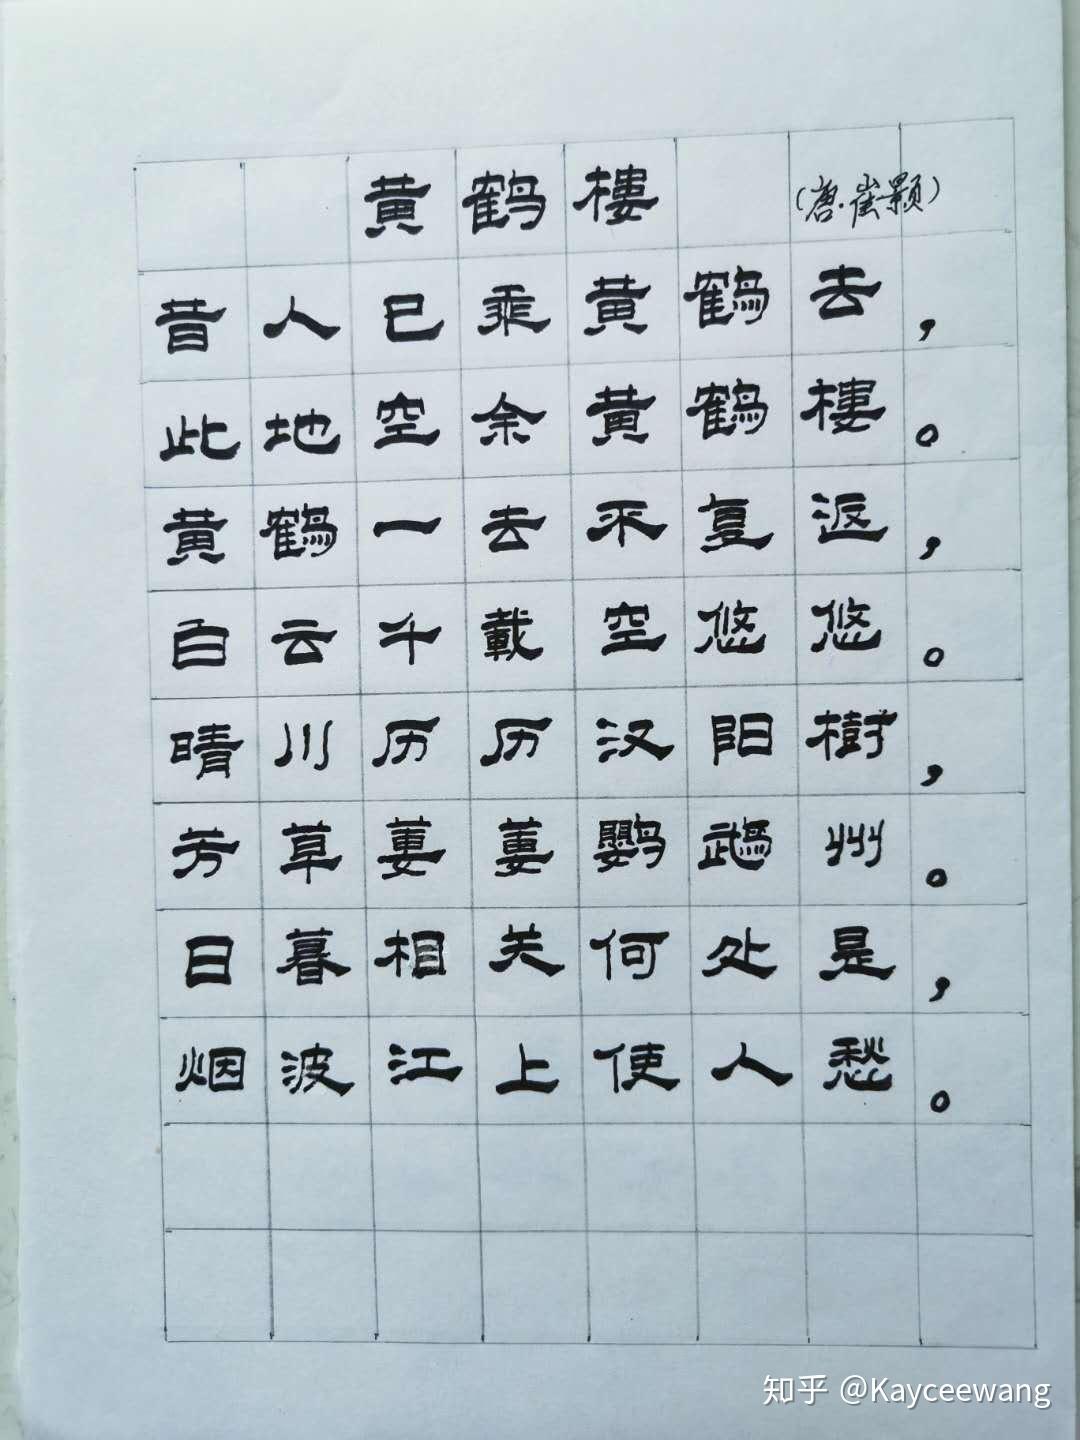 黄鹤樓 (唐·崔颢)
昔人已乘黄鹤去，
此地空余黄鹤樓。
黄鹤一去不复返，
白云千載空悠悠。
晴川历历汉阳樹，
芳草萋萋鹦鹉州。
日暮相关何处是，
烟波江上使人愁。
知乎 @Kayceewang